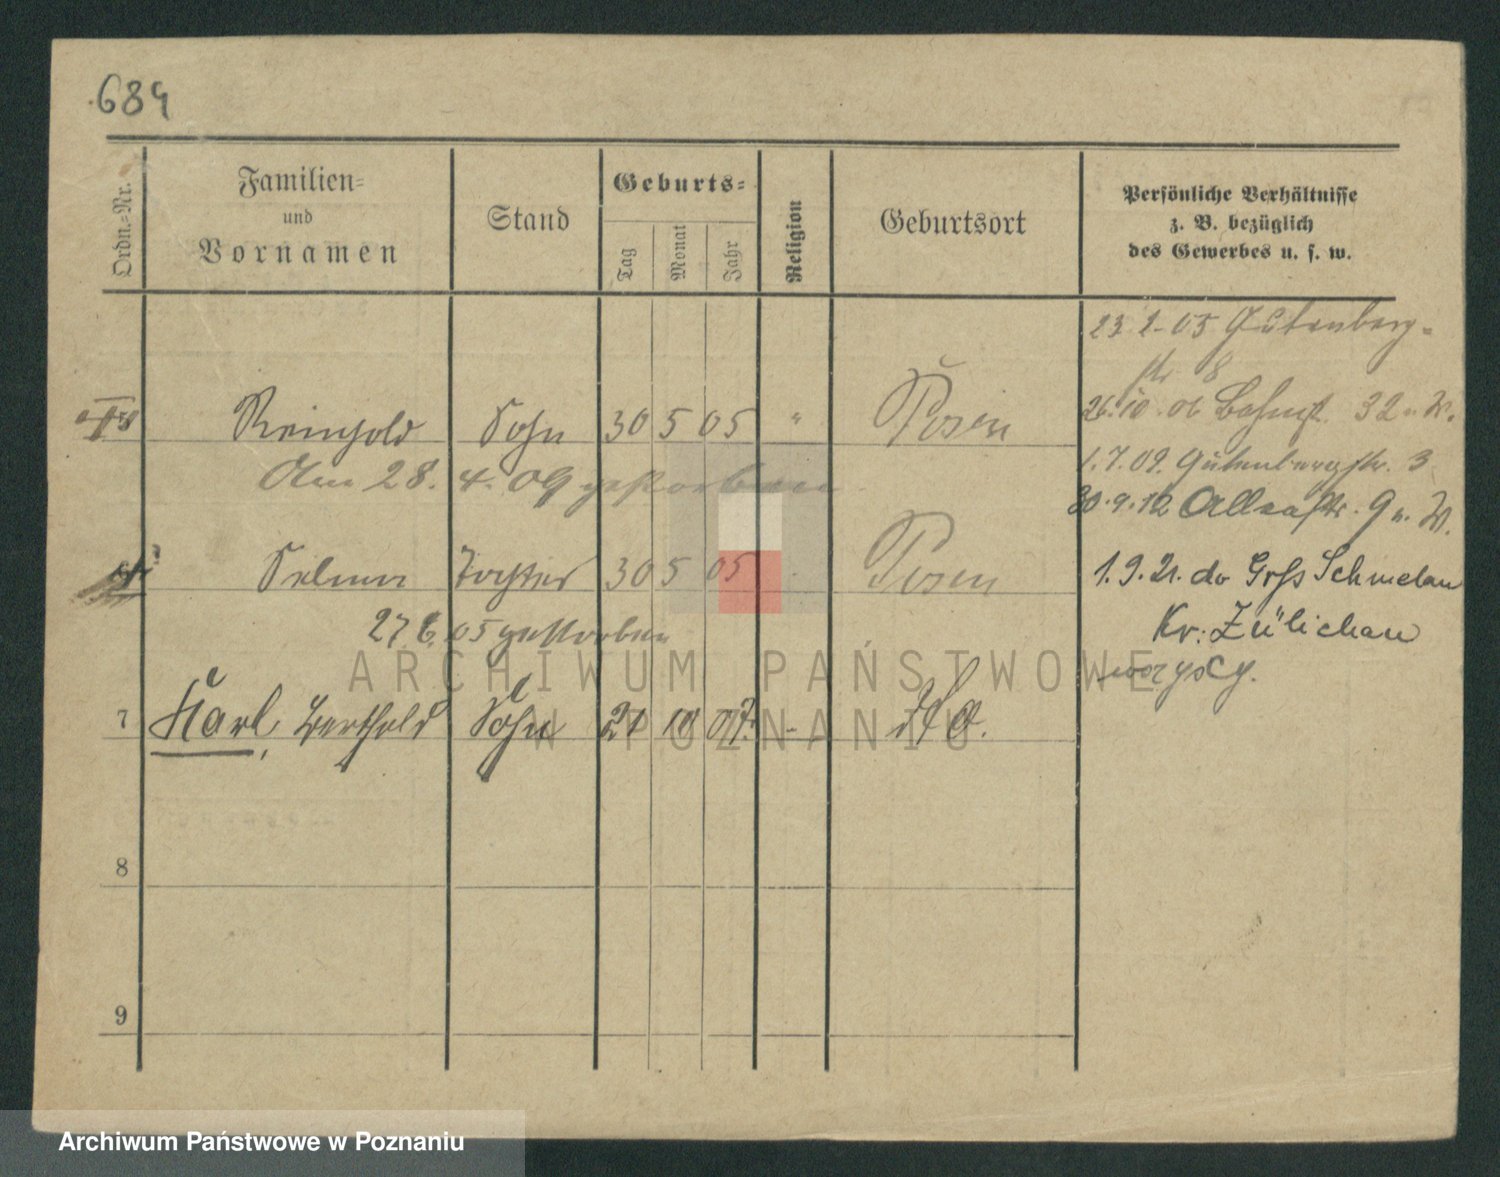 684
Ordn.-Nr.
Familien-
und
Vornamen
Stand
Geburts-
Tag
Monat
Jahr
Religion
Geburtsort
Persönliche Verhältnisse
z. B. bezüglich
des Gewerbes u. s. w.
23 2 05 Gutenberg-
str 8
Reinhold Sohn 30 5 05 " Posen
26.10.06 32 u. W.
Am 28. 4. 09 gestorben
1.7.09. Gutenbergstr. 3
30.9.12 9 u. W.
Selma Tochter 30 5 05 Posen
1.9.21. do Grß Schmelau
27 6 05 gestorben
Kr: Zülichau
wszyscy.
7 Karl, Berthold Sohn 21 10 07. - dto.
8
9
ARCHIWUM PAŃSTWOWE
W POZNANIU
Archiwum Państwowe w Poznaniu